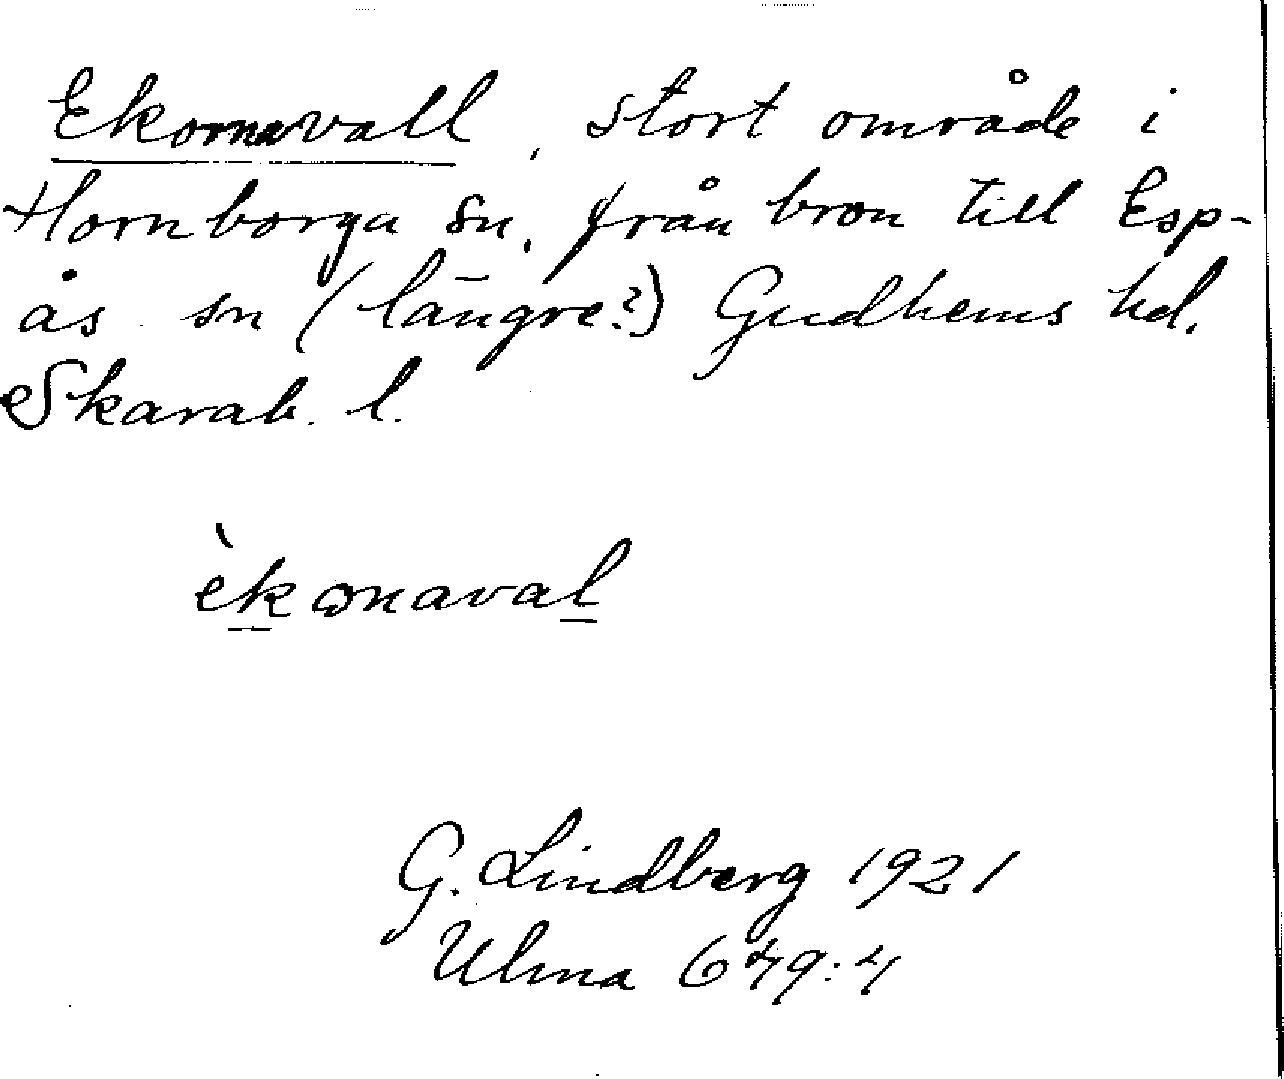 Ekornavall, stort område i
Hornborga sn, från bron till Esp-
ås sn (längre?) Gudhems hd.
Skarab. l.
èkonaval
G. Lindberg 1921
Ulma 649:4